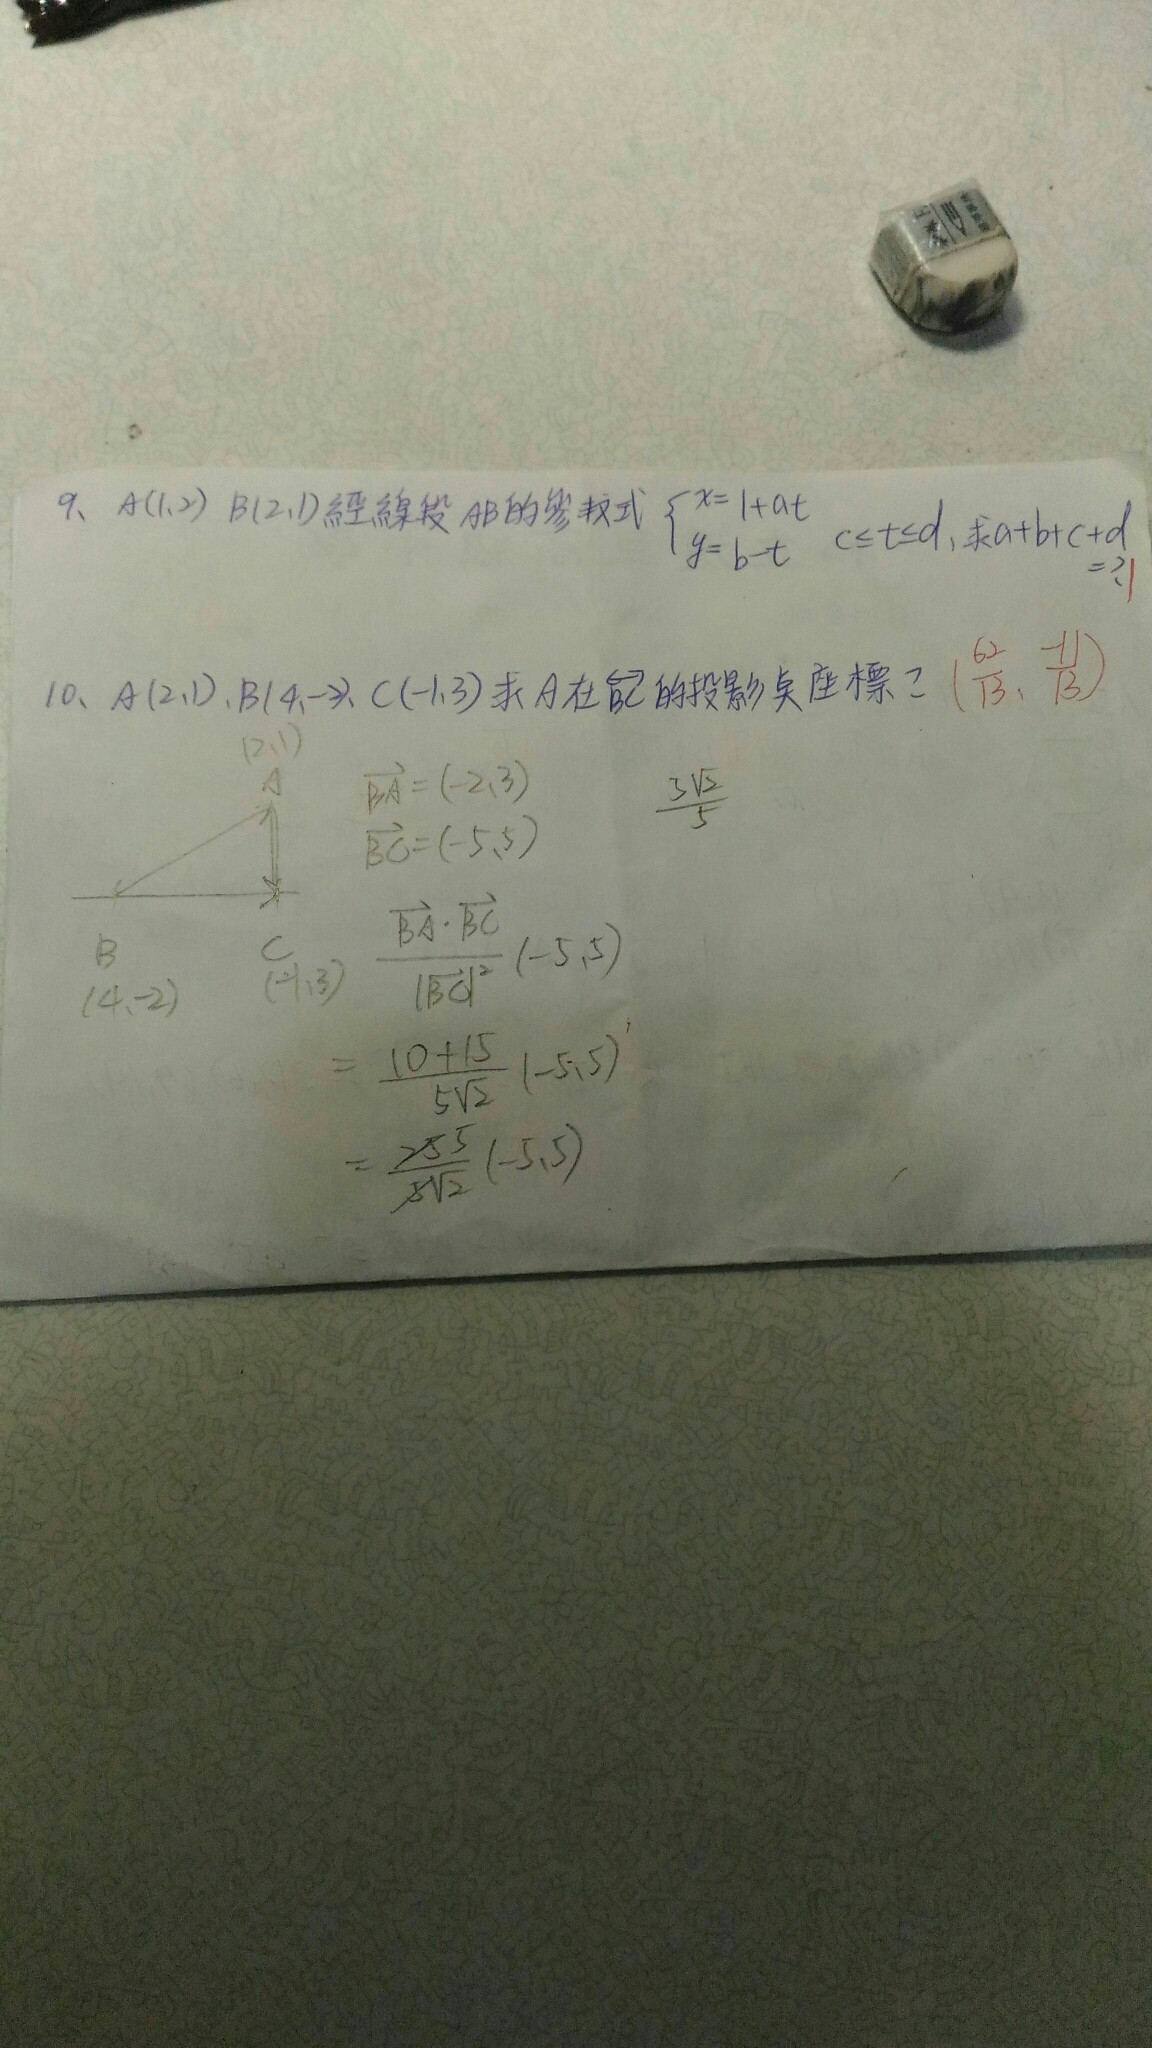 9、A(1,2) B(2,1)經線段AB的參數式 { x=1+at
y=b-t c≤t≤d、求a+b+c+d
=?1
10、A(2,1)、B(4,-2)、C(-1,3)求A在BC的投影点座標? (62/13、-11/13)
(2,1)
A
BA=(-2,3) 3√2/5
BC=(-5,5)
BA·BC/|BC|² (-5,5)
B C
(4,-2) (-1,3)
= 10+15/5√2 (-5,5)
= 25 5/5√2 (-5,5)